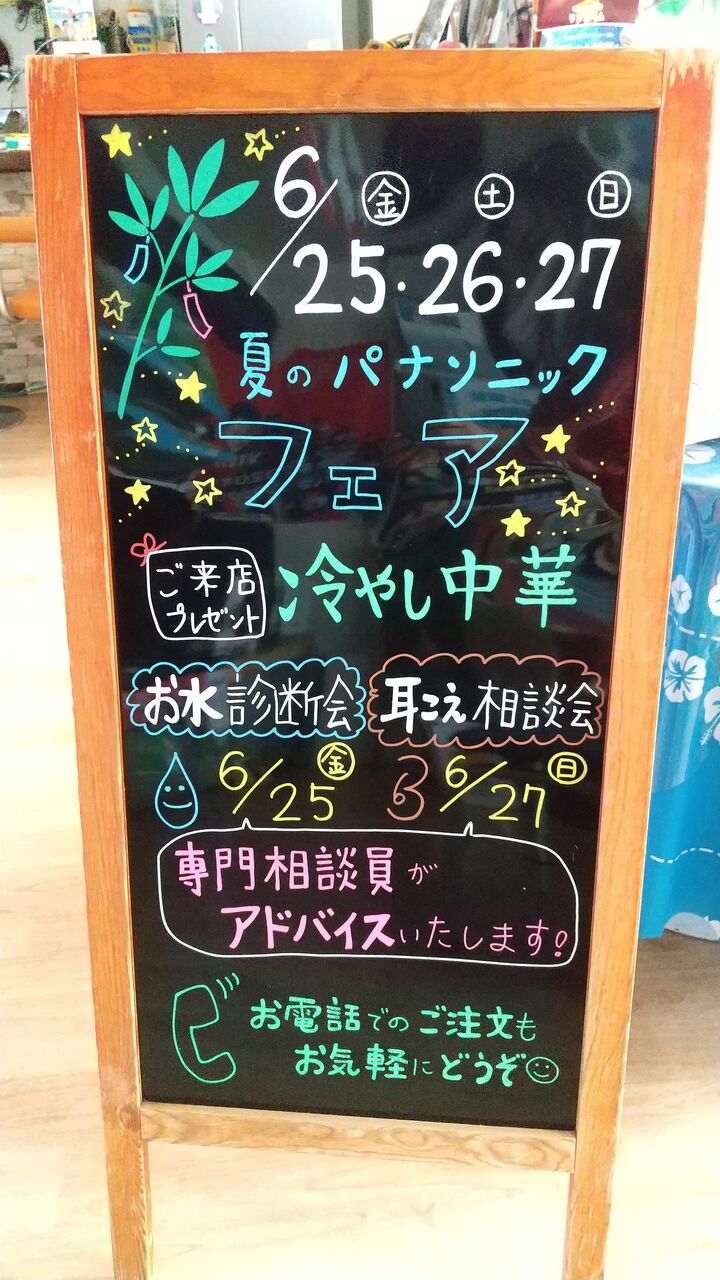 6/25・26・27
㊎ ㊏ ㊐
夏のパナソニック
フェア
ご来店
プレゼント
冷やし中華
お水診断会
6/25㊎
耳こえ相談会
6/27㊐
専門相談員が
アドバイスいたします!
お電話でのご注文も
お気軽にどうぞ